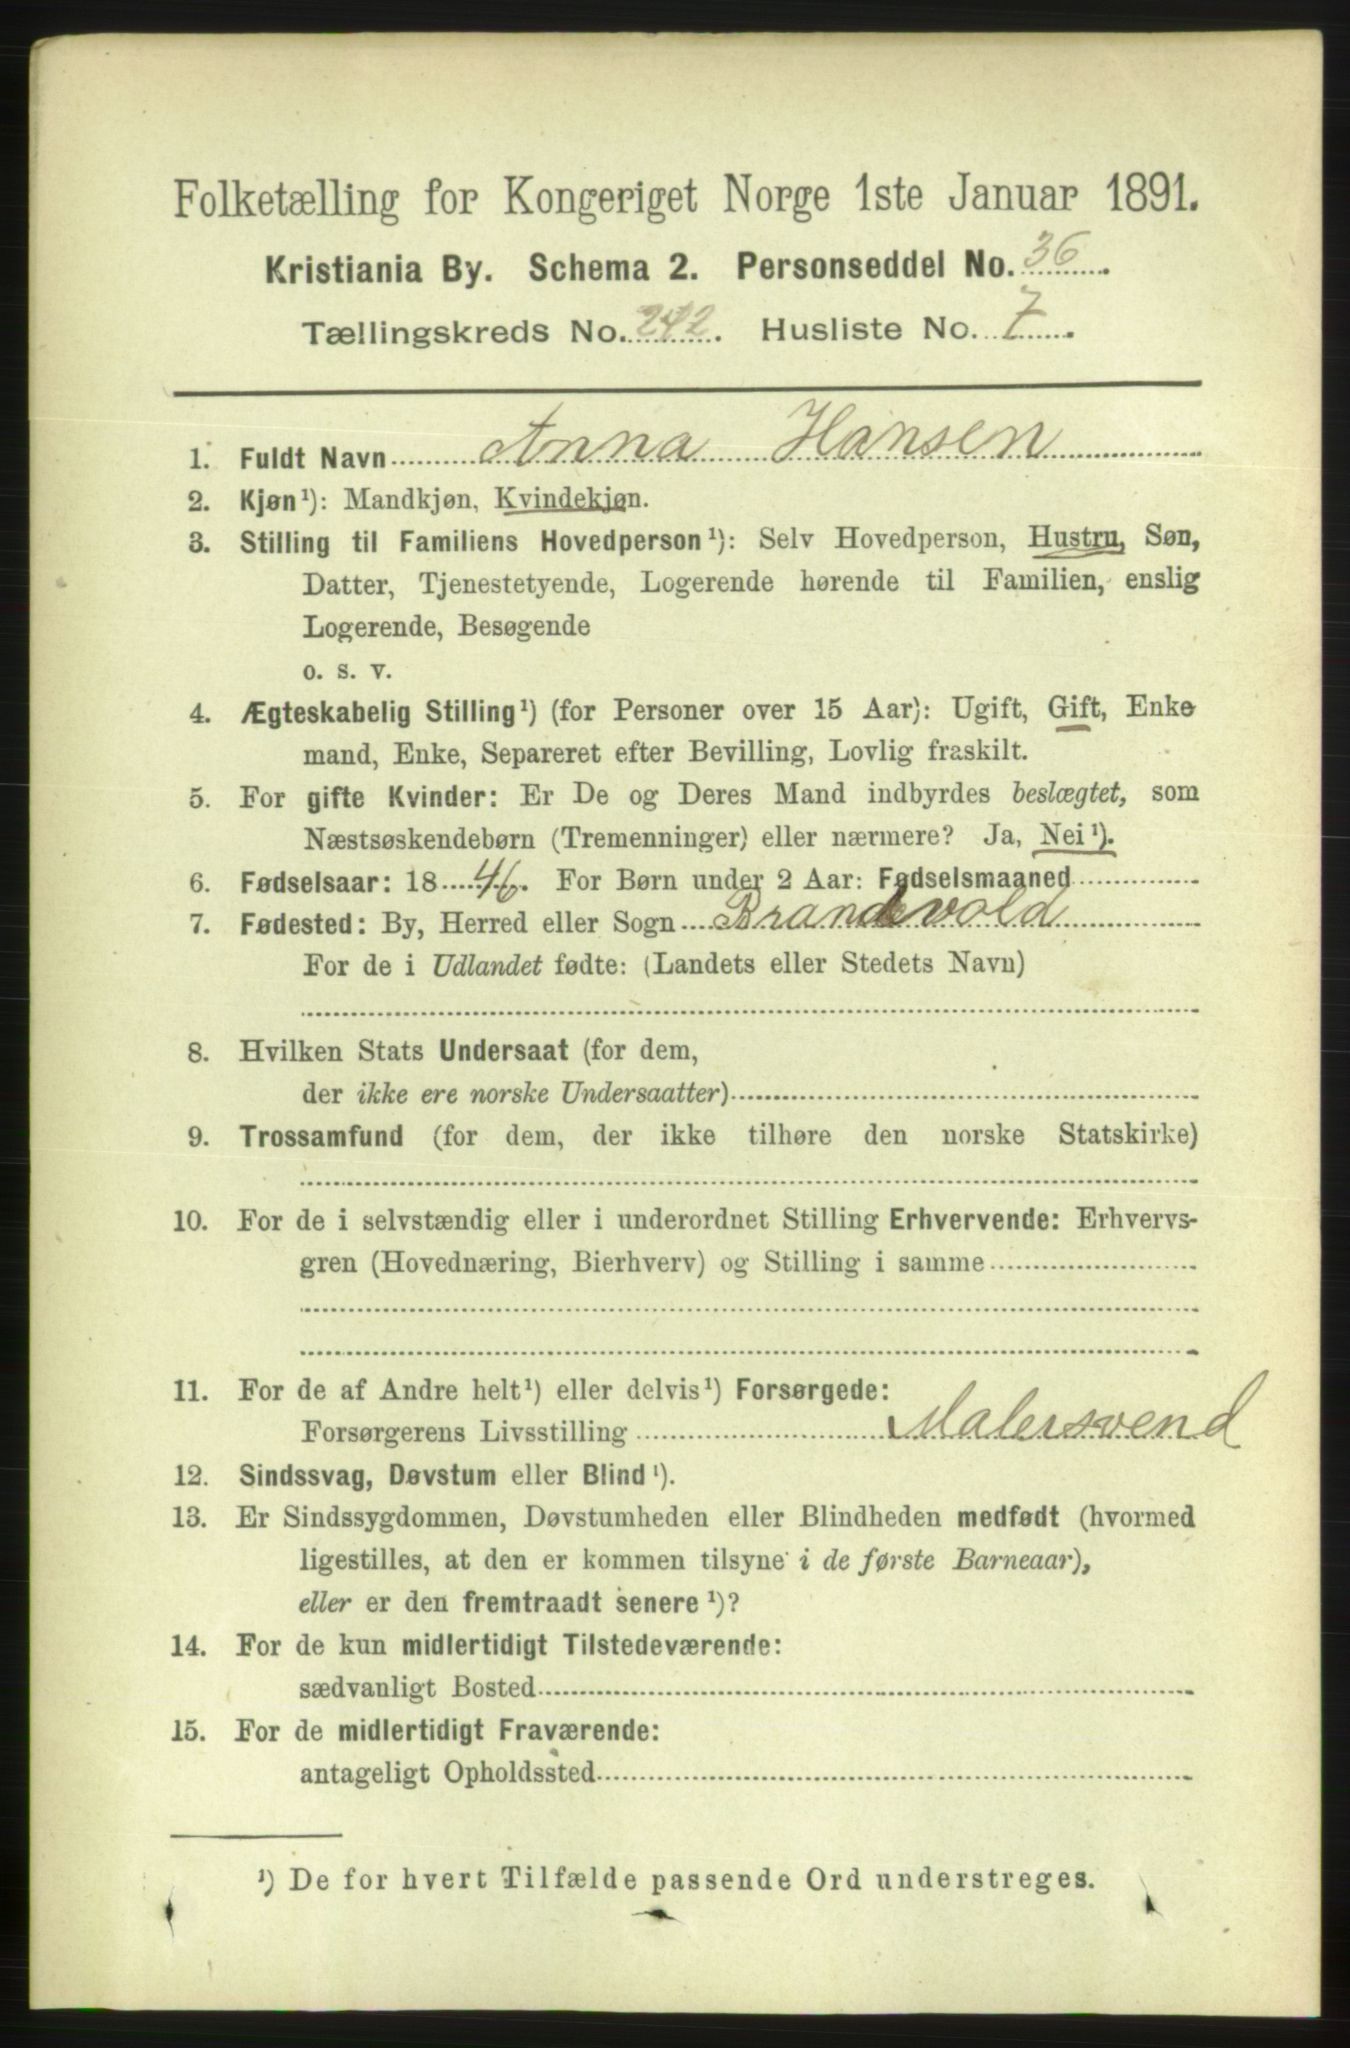 Folketælling for Kongeriget Norge 1ste Januar 1891.
Kristiania By. Schema 2. Personseddel No. 36.
Tællingskreds No. 242. Husliste No. 7.
1. Fuldt Navn Anna Hansen
2. Kjøn¹): Mandkjøn, Kvindekjøn.
3. Stilling til Familiens Hovedperson¹): Selv Hovedperson, Hustru, Søn,
Datter, Tjenestetyende, Logerende hørende til Familien, enslig
Logerende, Besøgende
o. s. v.
4. Ægteskabelig Stilling¹) (for Personer over 15 Aar): Ugift, Gift, Enke
mand, Enke, Separeret efter Bevilling, Lovlig fraskilt.
5. For gifte Kvinder: Er De og Deres Mand indbyrdes beslægtet, som
Næstsøskendebørn (Tremenninger) eller nærmere? Ja, Nei¹).
6. Fødselsaar: 1846. For Børn under 2 Aar: Fødselsmaaned
7. Fødested: By, Herred eller Sogn Brandvold
For de i Udlandet fødte: (Landets eller Stedets Navn)
8. Hvilken Stats Undersaat (for dem,
der ikke ere norske Undersaatter)
9. Trossamfund (for dem, der ikke tilhøre den norske Statskirke)
10. For de i selvstændig eller i underordnet Stilling Erhvervende: Erhvervs-
gren (Hovednæring, Bierhverv) og Stilling i samme
11. For de af Andre helt¹) eller delvis¹) Forsørgede:
Forsørgerens Livsstilling Malersvend
12. Sindssvag, Døvstum eller Blind¹).
13. Er Sindssygdommen, Døvstumheden eller Blindheden medfødt (hvormed
ligestilles, at den er kommen tilsyne i de første Barneaar),
eller er den fremtraadt senere¹)?
14. For de kun midlertidigt Tilstedeværende:
sædvanligt Bosted
15. For de midlertidigt Fraværende:
antageligt Opholdssted
¹) De for hvert Tilfælde passende Ord understreges.